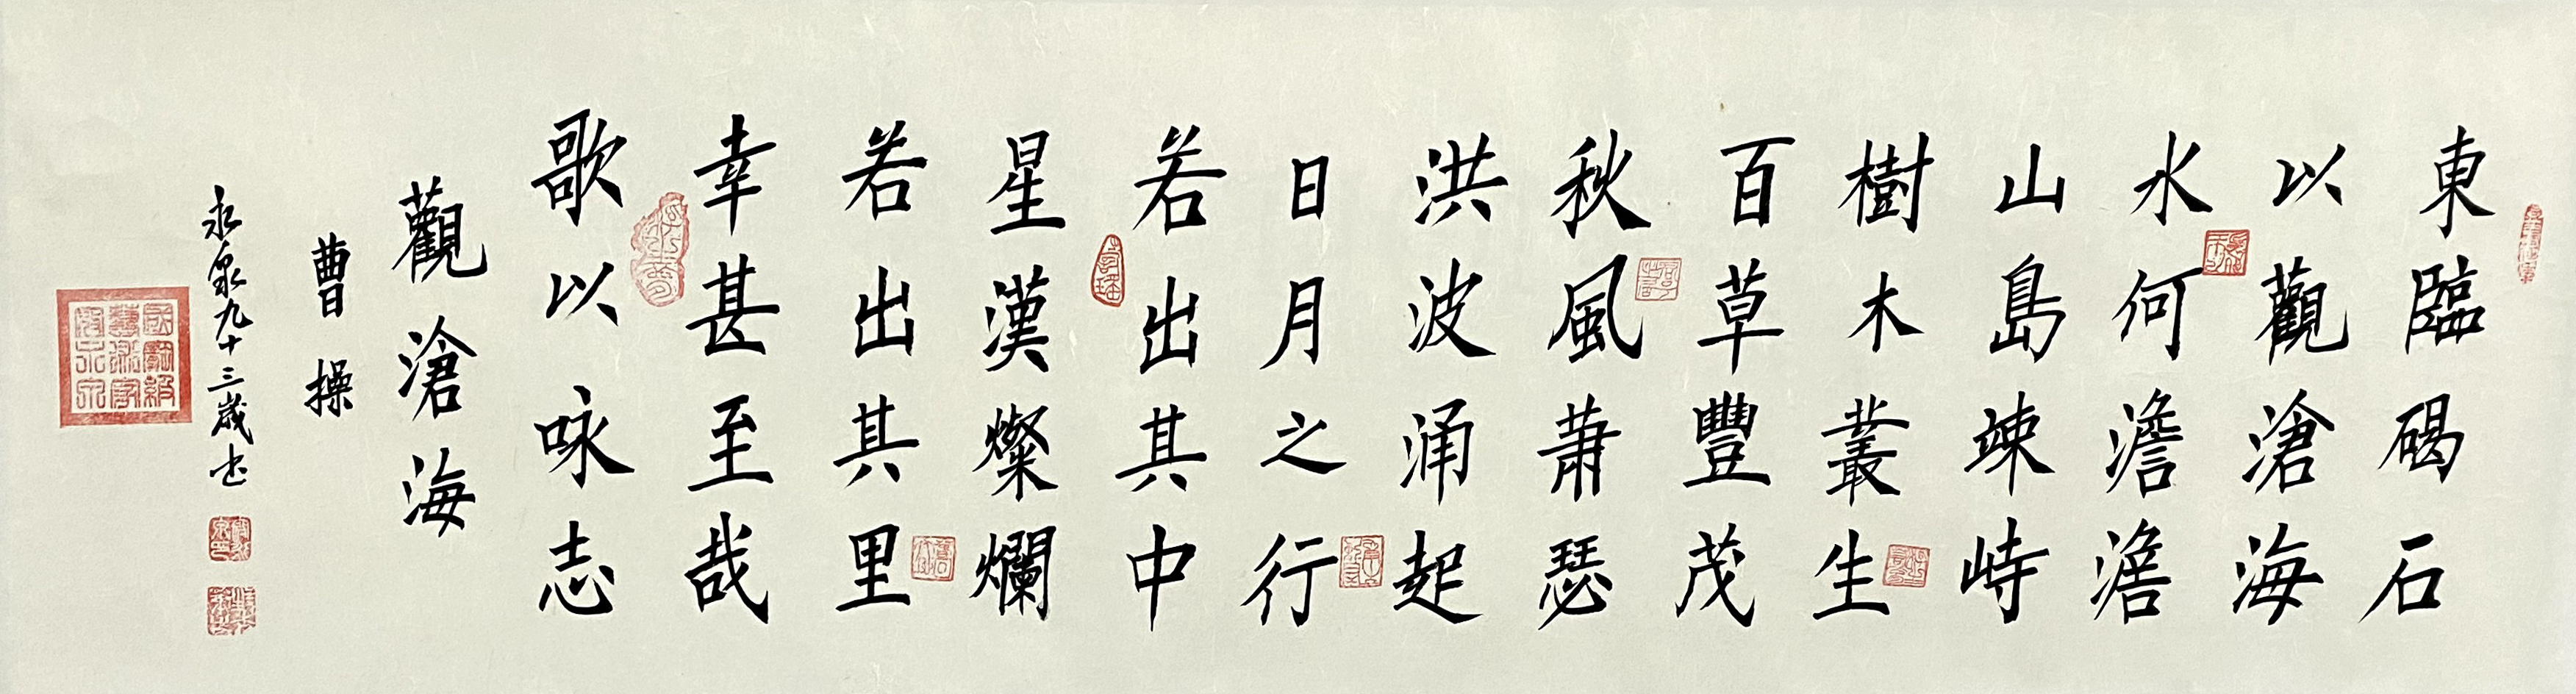 東臨碣石
以觀滄海
水何澹澹
山島竦峙
樹木叢生
百草豐茂
秋風蕭瑟
洪波涌起
日月之行
若出其中
星漢燦爛
若出其里
幸甚至哉
歌以咏志
觀滄海
曹操
永泉九十三歲书